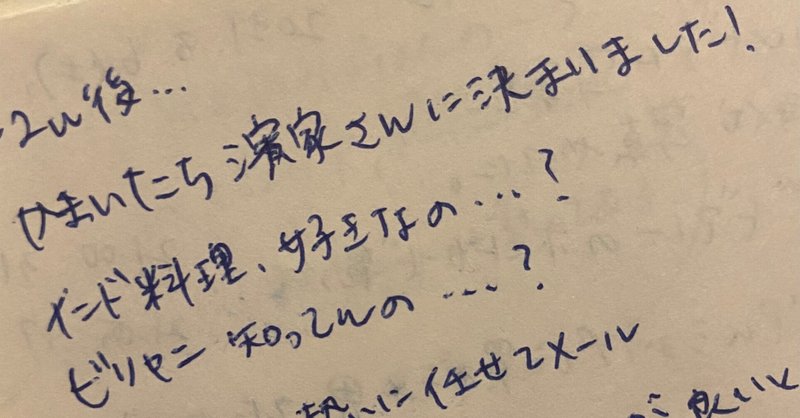 2w後…
かまいたち濱家さんに決まりました!
インド料理、好きなの…?
ビリヤニ知ってんの…?
勢いに任せてメール
が良いと